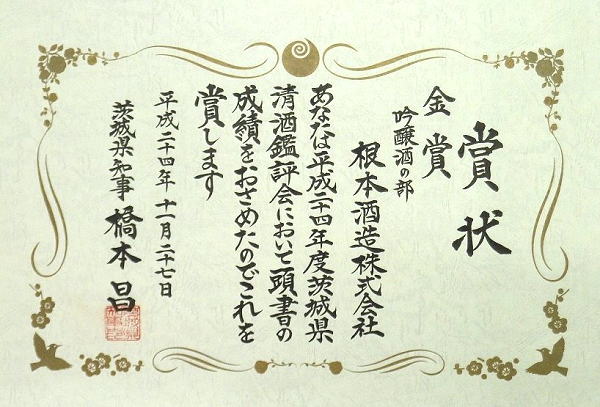 賞状
金賞
吟醸酒の部
根本酒造株式会社
あなたは平成二十四年度茨城県
清酒鑑評会において頭書の
成績をおさめたのでこれを
賞します
平成二十四年十一月二十七日
茨城県知事 橋本昌